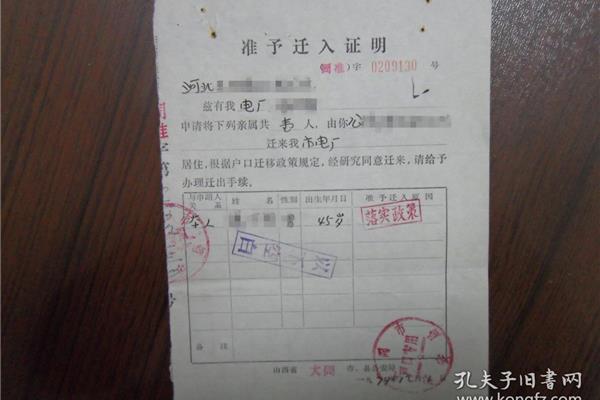 准予迁入证明
(同准)字 0209130 号
河北
兹有我 电厂
申请将下列亲属共 壱 人，由你
迁来我 市电厂
居住，根据户口迁移政策规定，经研究同意迁来，请给予
办理迁出手续。
与申请人关系 姓名 性别 出生年月日 准予迁入原因
本人 45岁 落实政策
以下空白
备注
山西省 大同 市、县公安局
孔夫子旧书网
www.kongfz.com